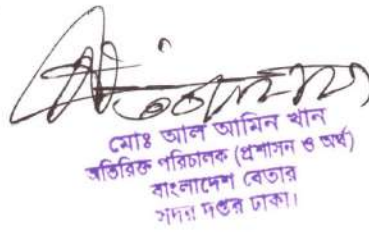 মোঃ আল আমিন খান
অতিরিক্ত পরিচালক (প্রশাসন ও অর্থ)
বাংলাদেশ বেতার
সদর দপ্তর ঢাকা।